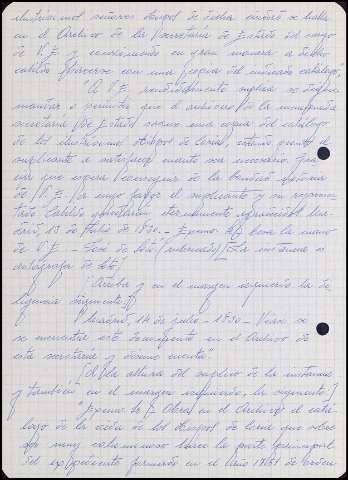 ilustrísimos señores obispos de dicha ciudad se halla
en el Archivo de la Secretaría de Estado del cargo
de V.E. y conviniendo en gran manera a dicho
cabildo hacerse con una copia del mencionado catálogo,
"A V.E. rendidamente suplica se digne
mandar o permitir que el archivero de la mencionada
secretaría de Estado saque una copia del catálogo
de los ilustrísimos obispos de Coria, estando pronto el
suplicante a satisfacer cuanto sea necesario. Gra
cia que espera conseguir de la bondad
de V.E. a cuyo favor el suplicante y su represen
tado Cabildo quedarán eternamente agradecidos. Ma
drid, 13 de julio de 1830. - Excmo. Sr. besa la mano
de V.E. - José de (rubricado) [La instancia es
autógrafa de
[Arriba y en el margen izquierdo la di
ligencia siguiente:]
"Madrid, 14 de julio - 1830 - Véase si
se encuentra este documento en el Archivo de
esta secretaría y déseme cuenta".
[A la altura del suplico de la instancia
y también en el margen izquierdo, la siguiente]
"Excmo. Sr. Obra en el Archivo el catá
logo de la vida de los obispos de Coria que sobre
ser muy voluminoso hace la parte principal
del expediente formado en el año 1751 de orden